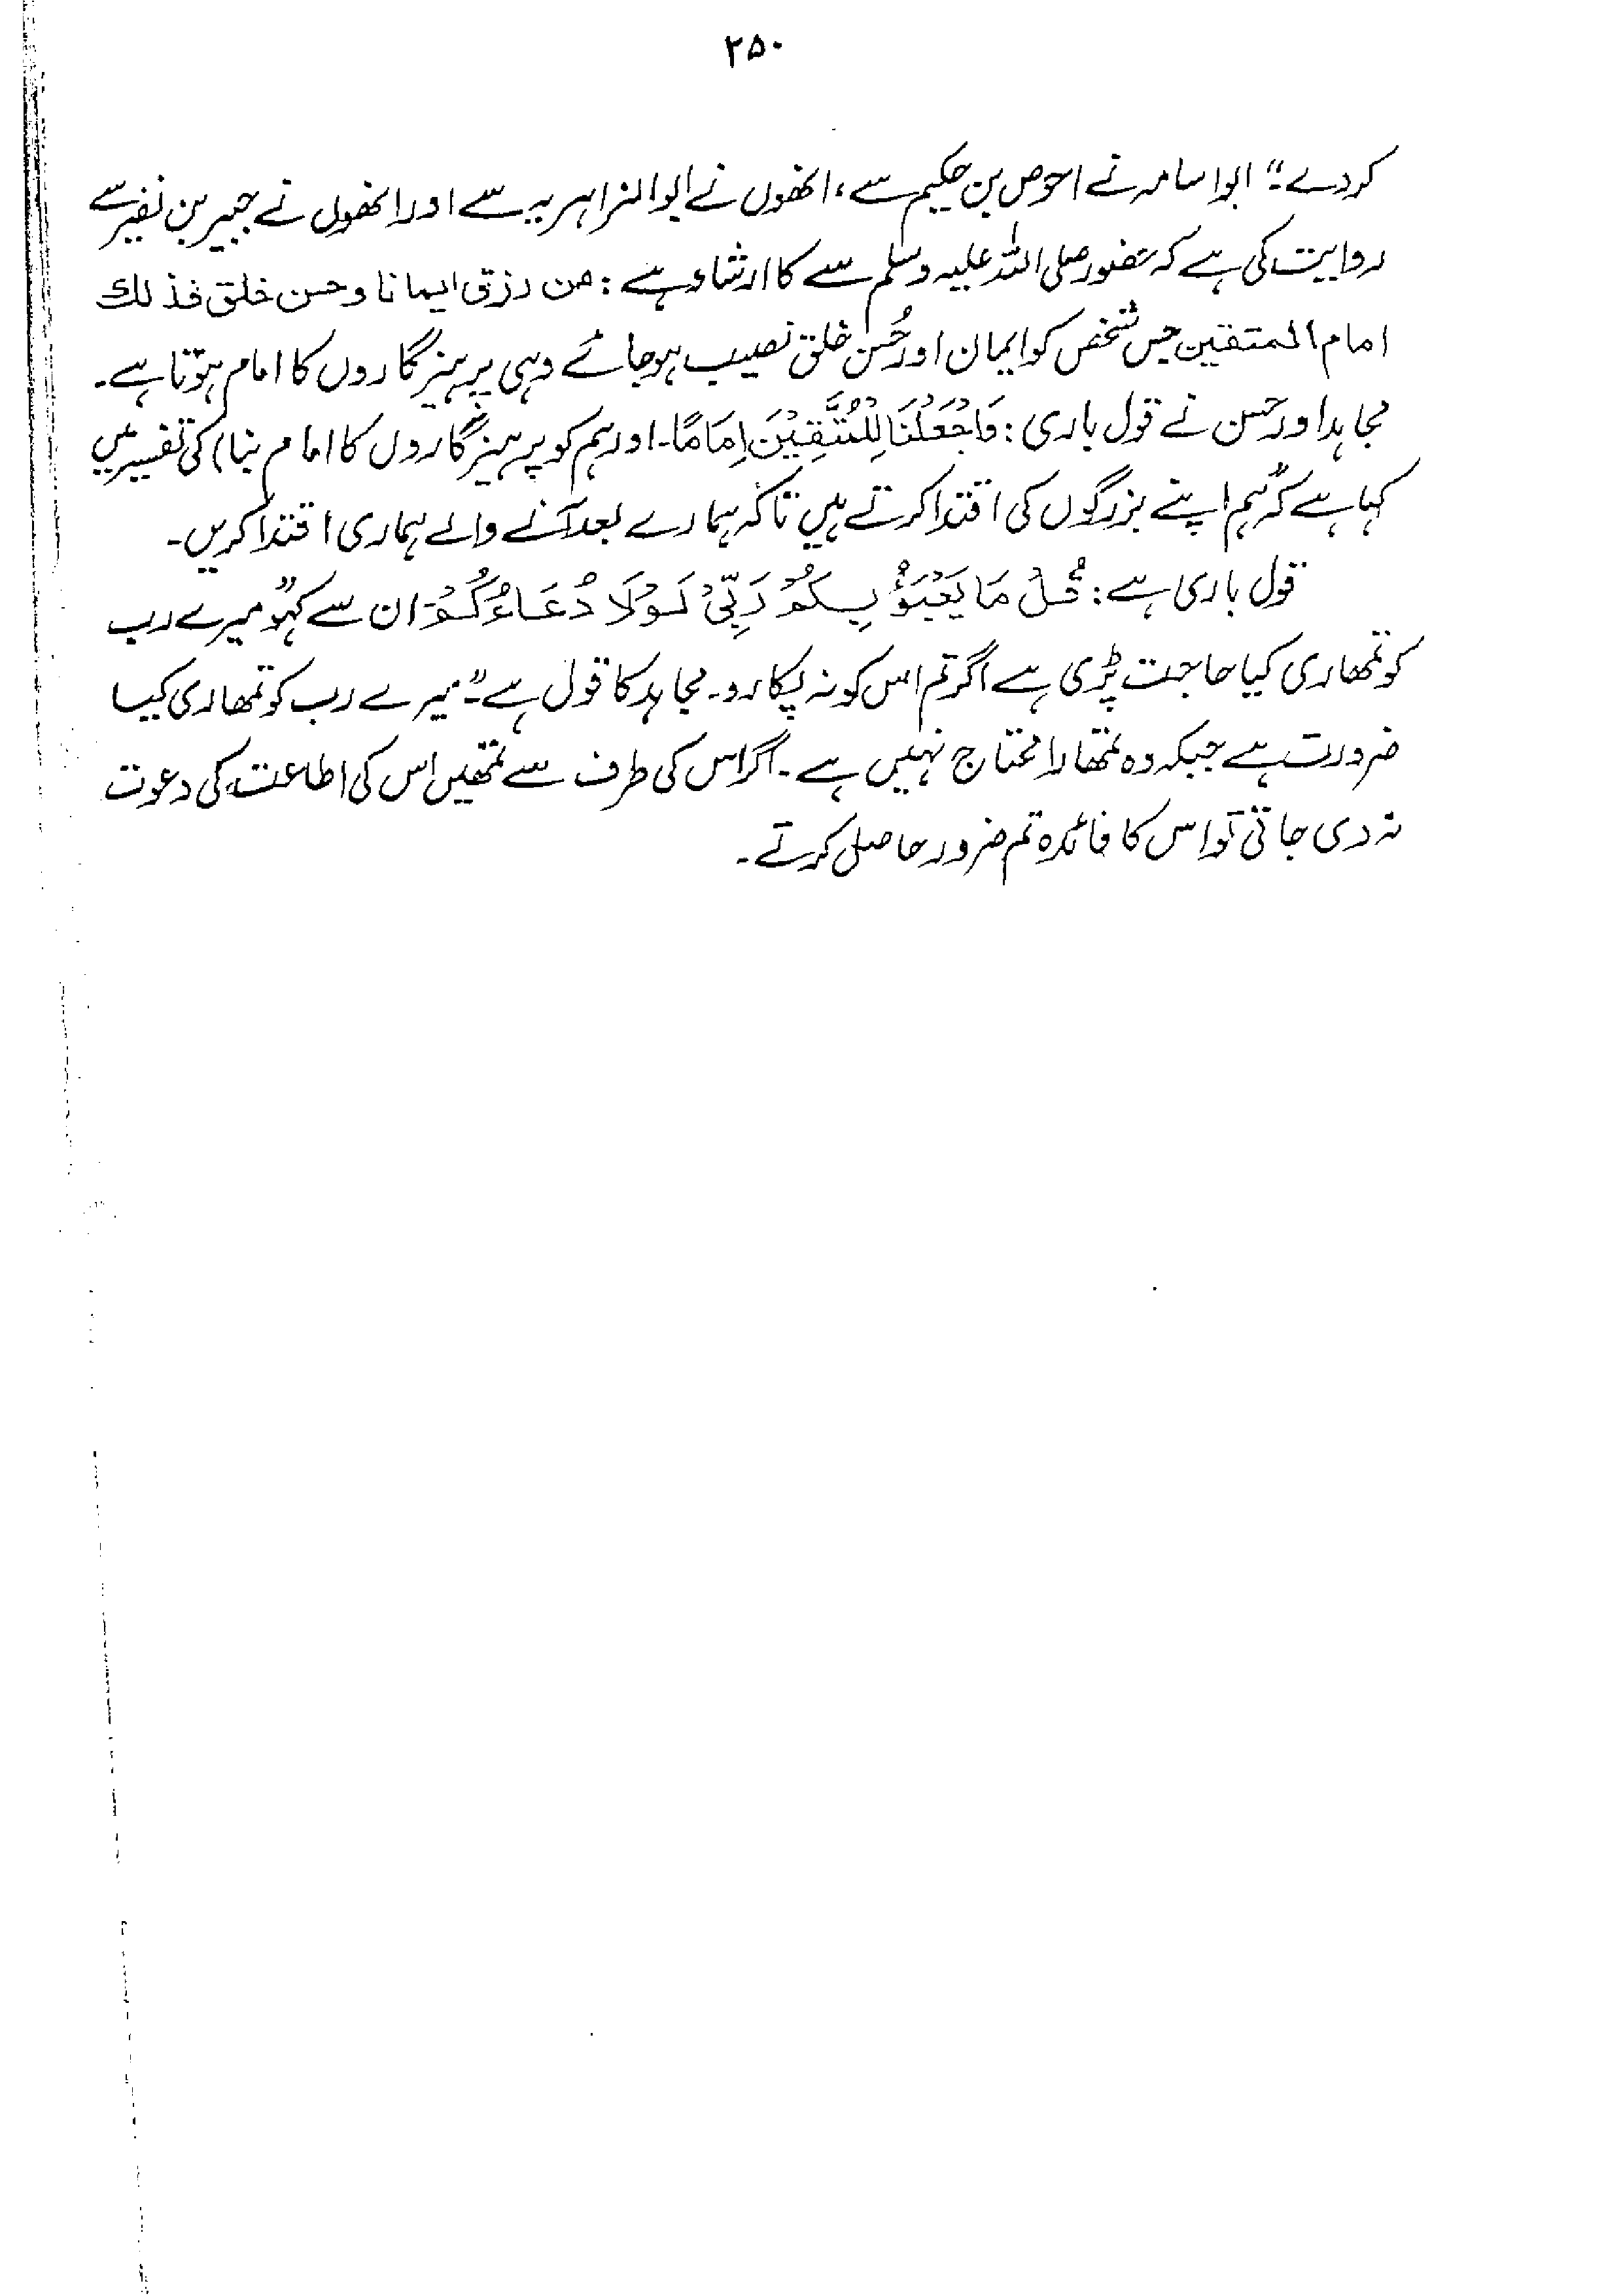 ۲۵۰
کردے۔" ابو اسامہ نے احوص بن حکیم سے، انھوں نے ابو الزاہریہ سے اور انھوں نے جبیر بن نفیر سے
روایت کی ہے کہ حضور صلی اللہ علیہ وسلم سے کا ارشاد ہے : من رزق ایمانا وحسن خلق فذلك
امام المتقین جس شخص کو ایمان اور حُسن خلق نصیب ہو جائے وہی پرہیزگاروں کا امام ہوتا ہے۔
مجاہد اور حسن نے قول باری : وَاجْعَلْنَا لِلْمُتَّقِیْنَ اِمَامًا۔ اور ہم کو پرہیزگاروں کا امام بنا) کی تفسیر میں
کہا ہے کہ "ہم اپنے بزرگوں کی اقتدا کرتے ہیں تاکہ ہمارے بعد آنے والے ہماری اقتدا کریں۔
قول باری ہے : قُلْ مَا یَعْبَؤُ بِکُمْ رَبِّیْ لَوْلَا دُعَاؤُکُمْ۔ ان سے کہو "میرے رب
کو تمھاری کیا حاجت پڑی ہے اگر تم اس کو نہ پکارو۔ مجاہد کا قول ہے۔ "میرے رب کو تمھاری کیا
ضرورت ہے جبکہ وہ تمھارا محتاج نہیں ہے۔ اگر اس کی طرف سے تمھیں اس کی اطاعت کی دعوت
نہ دی جاتی تو اس کا فائدہ تم ضرور حاصل کرتے۔